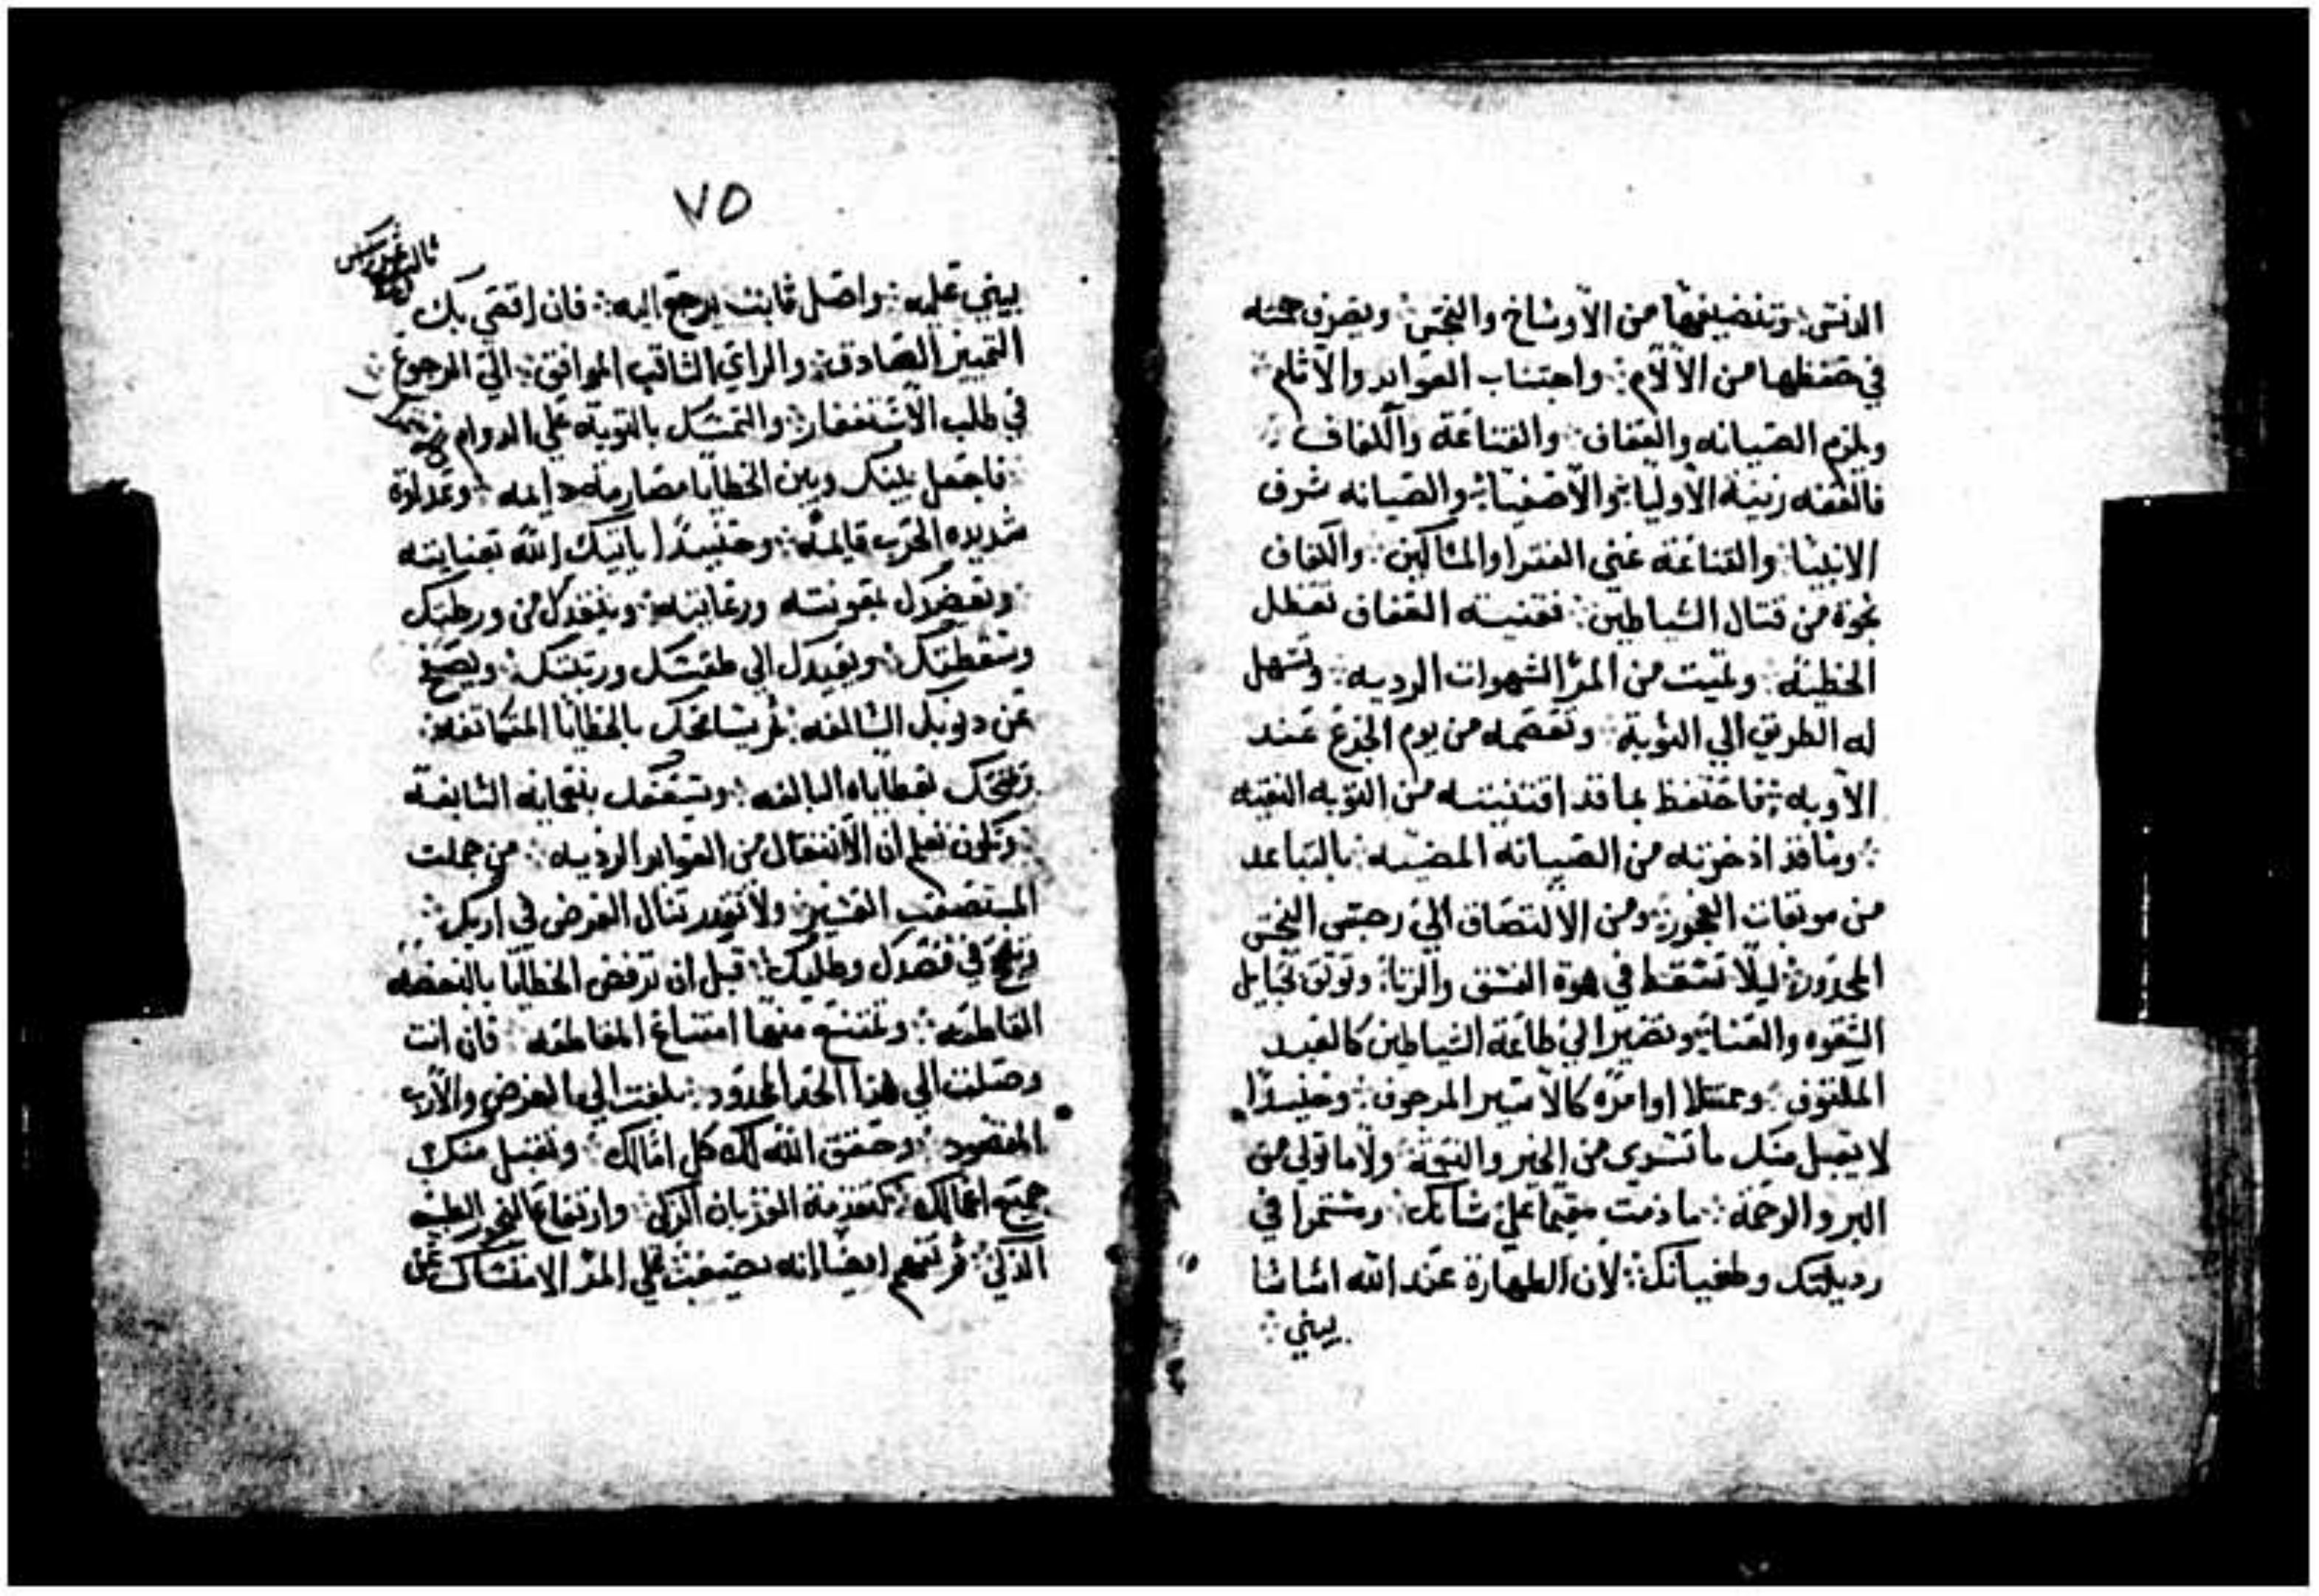 الدنس: وتنضيفها من الاوساخ والنجس: ويصرف همته
في حفظها من الآلام: واجتناب العوايد والاثام
ويلزم الصيانه والعفاف: والقناعة والكفاف
فالعفه زينة الاوليا والاصفيا: والصيانه شرف
الانبيا: والقناعه غني الفقرا والمساكين: والكفاف
نجوة من قتال الشياطين: فقنيته العفاف تعطل
الخطيه: وتميت من المرء الشهوات الرديه: وتسهل
له الطريق الي التوبة: وتعصمه من يوم الجزع عند
الاوبه: فاحتفظ بما قد اقتنيته من التوبه النقيه
: وما قد اذخرته من الصيانه المضيه: بالتباعد
من موبقات الفجور: ومن الالتصاق الي رجس النجس
المحدور: ليلا تسقط في هوة الفسق والزنا: وتوثق بحبايل
الشقوه والعنا: وتصير الي طاعة الشياطين كالعبد
الملقوف: وممتثلا اوامره كالاسير المرجوف: وحينيدا
لا يقبل منك ما تسدي من الخير والنجة: ولا ما تولي من
البر والرحمة: ما دمت مقيما علي شانك: ومستمرا في
رديلتك وطغيانك: لان الطهارة عند الله اساسا
يبني:
٧٥
يبني عليه: واصل ثابت يرجع اليه: فان اقتضي بك
التمييز الصادق: والراي الثاقب الموافق: الي الرجوع
في طلب الاستغفار: والتمسك بالتوبة علي الدوام
فاجعل بينك وبين الخطايا مصارمه دايمه: وعداوة
شديده الحرب قايمة: وحينيدا ياتيك الله بعنايته
: وتعضدك بمعونته ورعايته: وينقدك من ورطتك
وسقطتك: ويعيدك الي طقسك ورتبتك: ويصفح
عن دنوبك السالفه: ثم يسامحك بالخطايا المتكاتفه:
ويمنحك بعطاياه البالغه: ويسعفك بنعمايه السابغة
: وتكون تعلم ان الانتقال من العوايد الرديه: من جملت
المستصعب العسير: ولا تقدر تنال الغرض في اربك:
وتنجح في قصدك وطلبك: قبل ان ترفض الخطايا بالبغضه
القاطعه: وتمتنع منها امتناع المقاطعه: فان انت
وصلت الي هذا الحد المحدود: بلغت الي الغرض والارب
المقصود: وحقق الله لك كل امالك: وتقبل منك
جميع اعمالك: كتقدمة القربان الزكي: وارتفاع البخور الطيب
الذكي: ثم تعلم ايضا انه يصعب علي المرء الامتساك عن